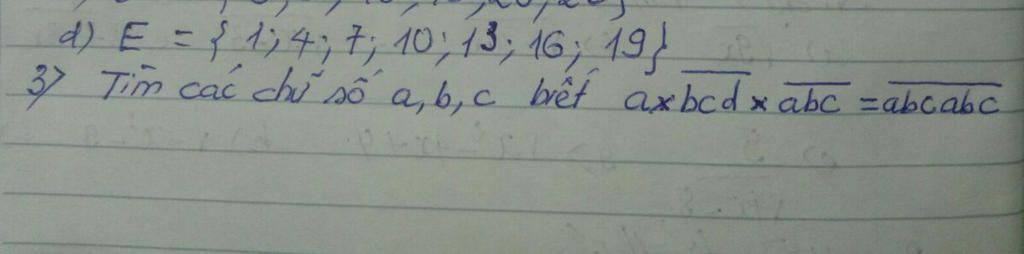 d) E = { 1; 4; 7; 10; 13; 16; 19}
3) Tìm các chữ số a, b, c biết a × \overline{bcd} × \overline{abc} = \overline{abcabc}